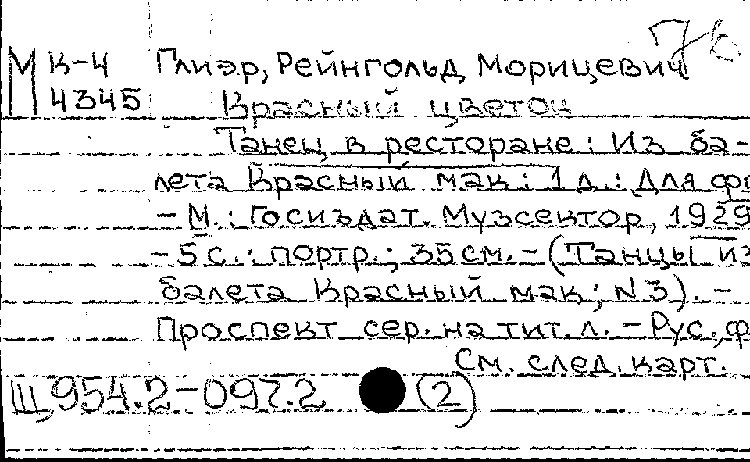 76
М К-4 Глиэр, Рейнгольд Морицевич
4345 Красный цветок
Танец в ресторане: Из ба-
лета Красный мак: 1 д.: Для фп
- М.: Госиздат. Музсектор, 1929
- 5 с.: портр.; 35 см. - (Танцы из
балета Красный мак; N 3). -
Проспект сер. на тит. л. - Рус., ф
См. след. карт.
Щ 954.2-097.2 (2)